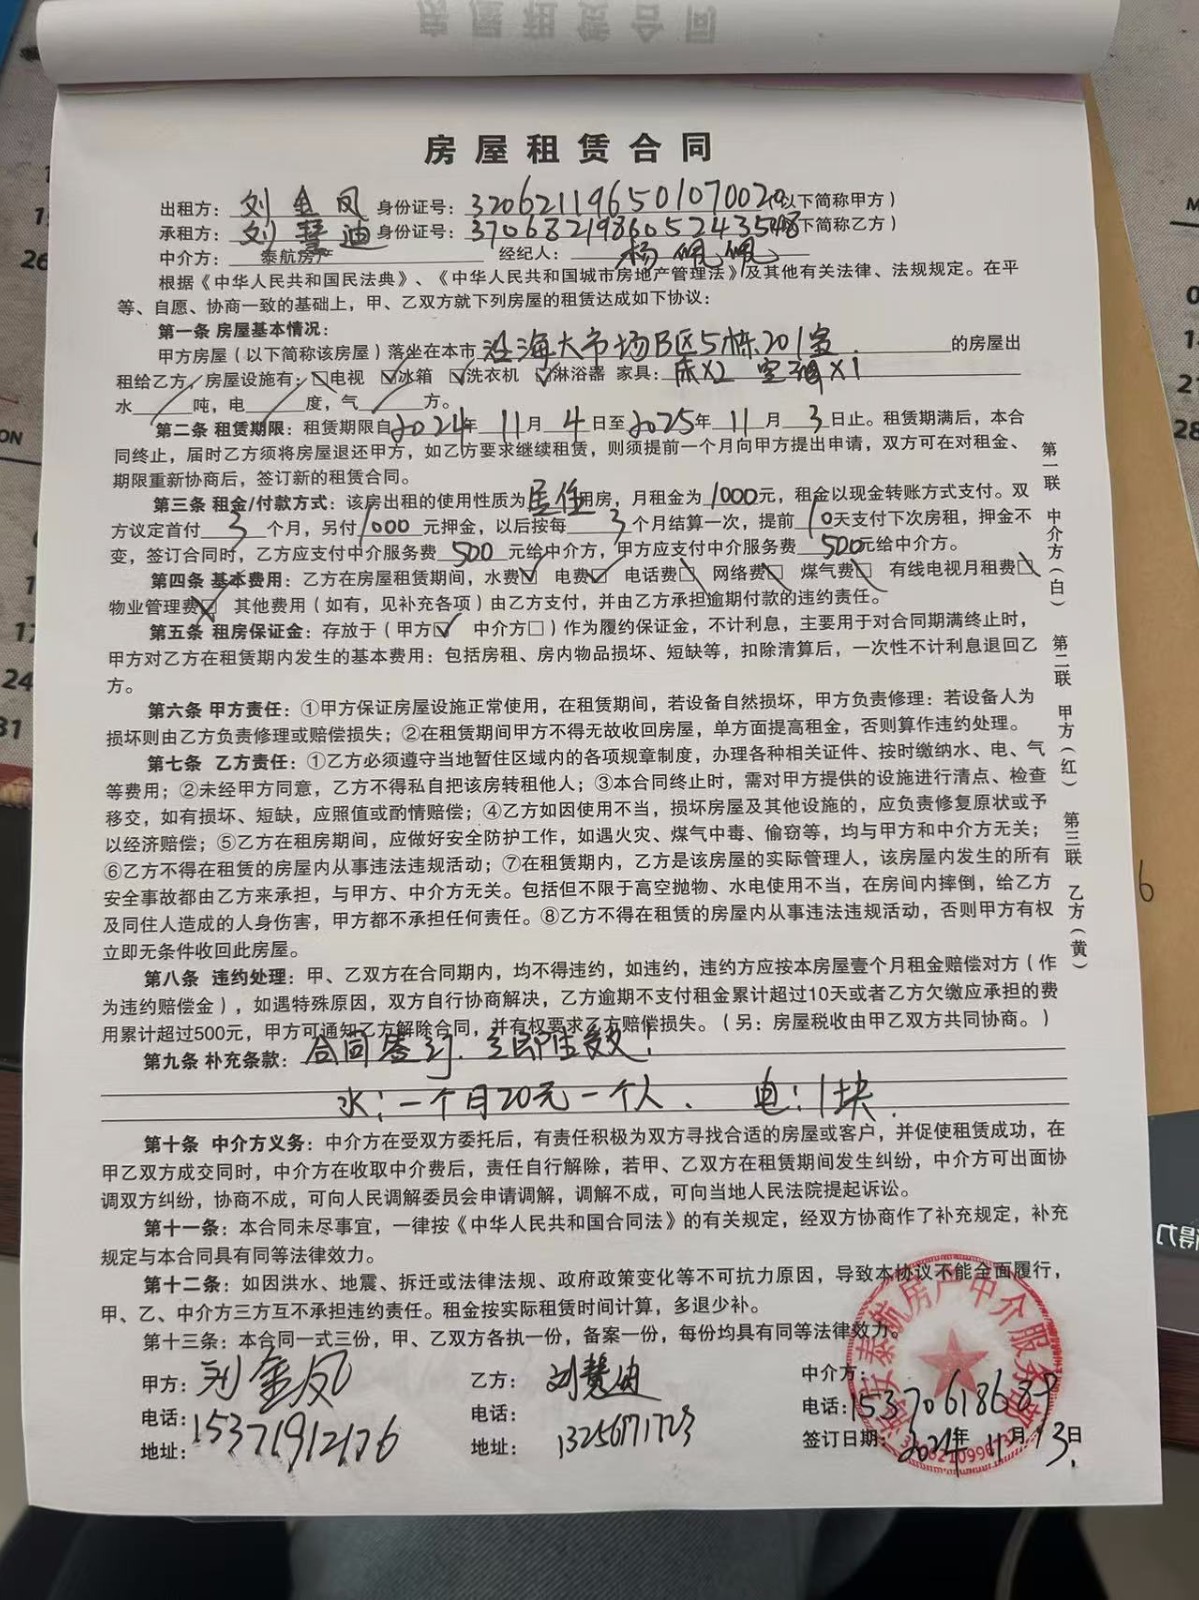 房屋租赁合同
出租方：刘金凤 身份证号：320621196501070020（以下简称甲方）
承租方：刘慧迪 身份证号：370682198605243548（以下简称乙方）
中介方：泰航房产 经纪人：杨佩佩
根据《中华人民共和国民法典》、《中华人民共和国城市房地产管理法》及其他有关法律、法规规定。在平
等、自愿、协商一致的基础上，甲、乙双方就下列房屋的租赁达成如下协议：
第一条 房屋基本情况：
甲方房屋（以下简称该房屋）落坐在本市沿海大市场B区5栋201室的房屋出
租给乙方，房屋设施有：☐电视 ☑冰箱 ☑洗衣机 ☑淋浴器 家具：床X2 空调X1
水 吨，电 度，气 方。
第二条 租赁期限：租赁期限自2024年11月4日至2025年11月3日止。租赁期满后，本合
同终止，届时乙方须将房屋退还甲方，如乙方要求继续租赁，则须提前一个月向甲方提出申请，双方可在对租金、
期限重新协商后，签订新的租赁合同。
第三条 租金/付款方式：该房出租的使用性质为居住用房，月租金为1000元，租金以现金转账方式支付。双
方议定首付3个月，另付1000元押金，以后按每3个月结算一次，提前10天支付下次房租，押金不
变，签订合同时，乙方应支付中介服务费500元给中介方，甲方应支付中介服务费500元给中介方。
第四条 基本费用：乙方在房屋租赁期间，水费☑ 电费☑ 电话费☐ 网络费☐ 煤气费☐ 有线电视月租费☐
物业管理费☒ 其他费用（如有，见补充各项）由乙方支付，并由乙方承担逾期付款的违约责任。
第五条 租房保证金：存放于（甲方☑ 中介方☐）作为履约保证金，不计利息，主要用于对合同期满终止时，
甲方对乙方在租赁期内发生的基本费用：包括房租、房内物品损坏、短缺等，扣除清算后，一次性不计利息退回乙
方。
第六条 甲方责任：①甲方保证房屋设施正常使用，在租赁期间，若设备自然损坏，甲方负责修理：若设备人为
损坏则由乙方负责修理或赔偿损失；②在租赁期间甲方不得无故收回房屋，单方面提高租金，否则算作违约处理。
第七条 乙方责任：①乙方必须遵守当地暂住区域内的各项规章制度，办理各种相关证件、按时缴纳水、电、气
等费用；②未经甲方同意，乙方不得私自把该房转租他人；③本合同终止时，需对甲方提供的设施进行清点、检查
移交，如有损坏、短缺，应照值或酌情赔偿；④乙方如因使用不当，损坏房屋及其他设施的，应负责修复原状或予
以经济赔偿；⑤乙方在租房期间，应做好安全防护工作，如遇火灾、煤气中毒、偷窃等，均与甲方和中介方无关；
⑥乙方不得在租赁的房屋内从事违法违规活动；⑦在租赁期内，乙方是该房屋的实际管理人，该房屋内发生的所有
安全事故都由乙方来承担，与甲方、中介方无关。包括但不限于高空抛物、水电使用不当，在房间内摔倒，给乙方
及同住人造成的人身伤害，甲方都不承担任何责任。⑧乙方不得在租赁的房屋内从事违法违规活动，否则甲方有权
立即无条件收回此房屋。
第八条 违约处理：甲、乙双方在合同期内，均不得违约，如违约，违约方应按本房屋壹个月租金赔偿对方（作
为违约赔偿金），如遇特殊原因，双方自行协商解决，乙方逾期不支付租金累计超过10天或者乙方欠缴应承担的费
用累计超过500元，甲方可通知乙方解除合同，并有权要求乙方赔偿损失。（另：房屋税收由甲乙双方共同协商。）
第九条 补充条款：合同签订，立即生效！
水：一个月20元一个人、 电：1块．
第十条 中介方义务：中介方在受双方委托后，有责任积极为双方寻找合适的房屋或客户，并促使租赁成功，在
甲乙双方成交同时，中介方在收取中介费后，责任自行解除，若甲、乙双方在租赁期间发生纠纷，中介方可出面协
调双方纠纷，协商不成，可向人民调解委员会申请调解，调解不成，可向当地人民法院提起诉讼。
第十一条：本合同未尽事宜，一律按《中华人民共和国合同法》的有关规定，经双方协商作了补充规定，补充
规定与本合同具有同等法律效力。
第十二条：如因洪水、地震、拆迁或法律法规、政府政策变化等不可抗力原因，导致本协议不能全面履行，
甲、乙、中介方三方互不承担违约责任。租金按实际租赁时间计算，多退少补。
第十三条：本合同一式三份，甲、乙双方各执一份，备案一份，每份均具有同等法律效力。
甲方：刘金凤 乙方：刘慧迪 中介方：
电话：15371912176 电话：13256771723 电话：15370618687
地址： 地址： 签订日期：2024年11月13日
第一联 中介方（白） 第二联 甲方（红） 第三联 乙方（黄）
泰航房产中介服务部